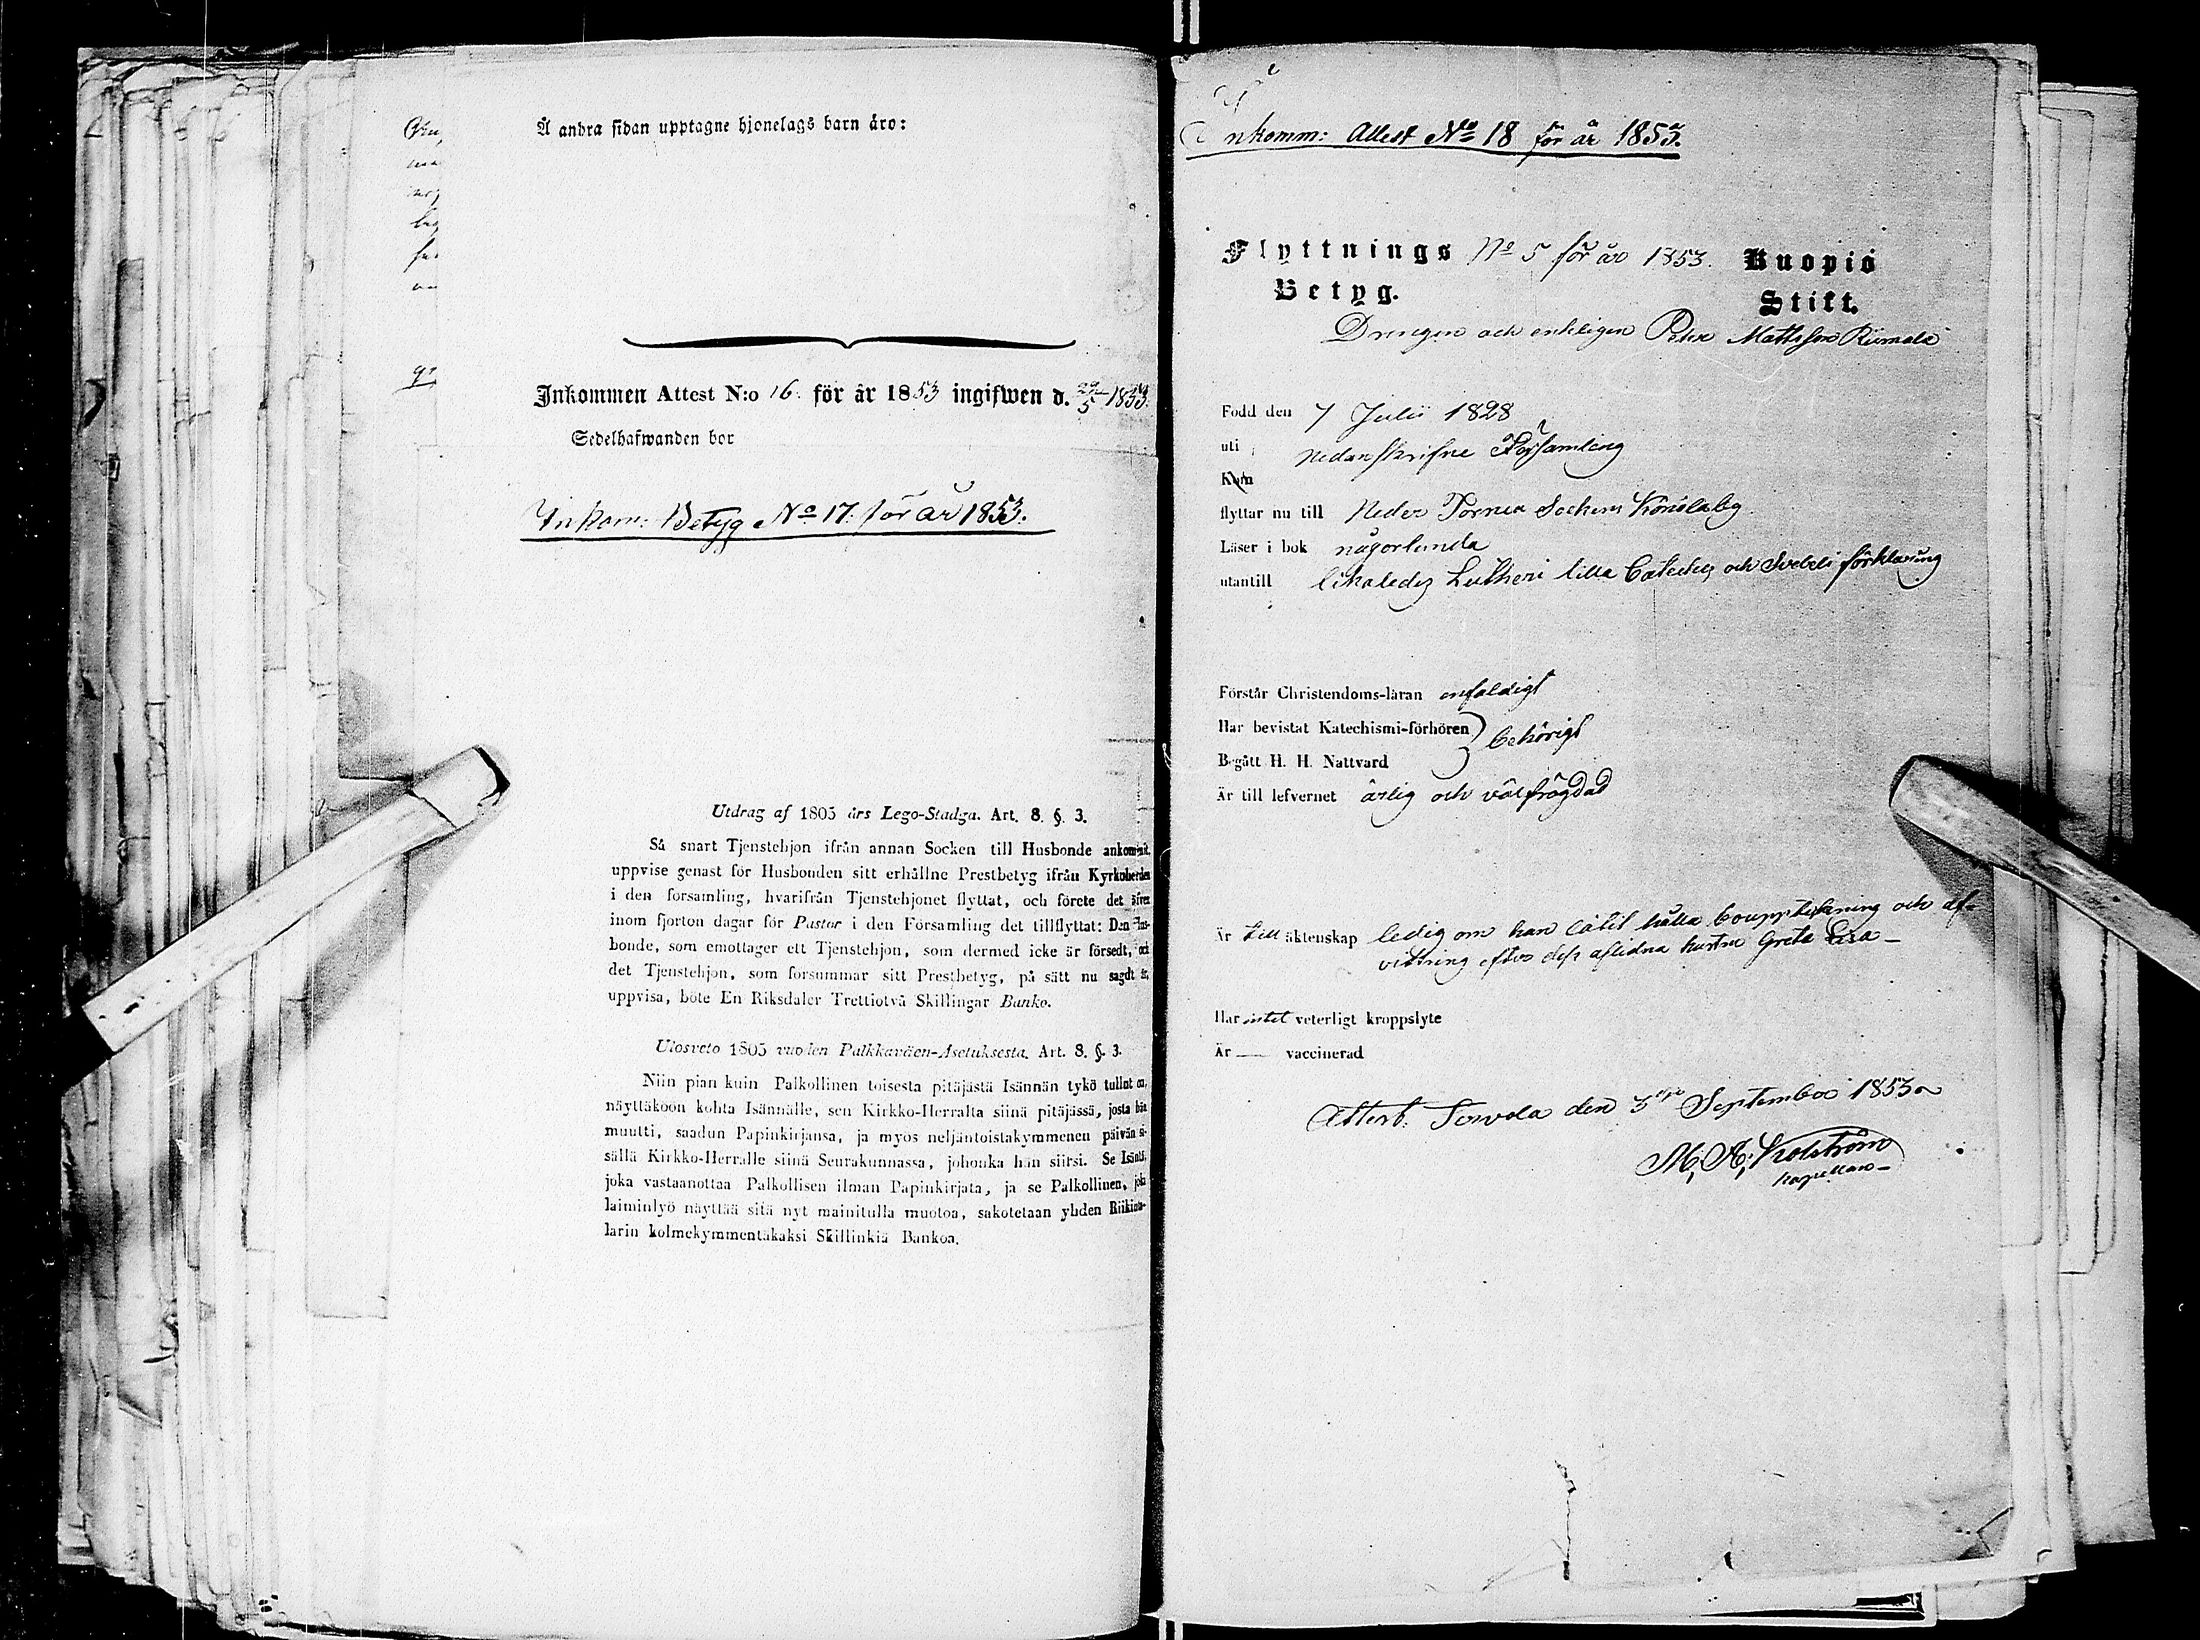 Å andra sidan upptagne hjonelags barn äro:
Inkommen Attest N:o 16. för år 1853 ingifwen d. 29/5 1853.
Sedelhafwanden bor
Inkom: Betyg No 17. för år 1853.
Utdrag af 1805 års Lego-Stadga. Art. 8. §. 3.
Så snart Tjenstehjon ifrån annan Socken till Husbonde ankommit,
uppvise genast för Husbonden sitt erhållne Prestbetyg ifrån Kyrkoherden
i den forsamling, hvarifrån Tjenstehjonet flyttat, och förete det äfven
inom fjorton dagar för Pastor i den Församling det tillflyttat: Den Hus-
bonde, som emottager ett Tjenstehjon, som dermed icke är försedt, och
det Tjenstehjon, som forsummar sitt Prestbetyg, på sätt nu sagdt är,
uppvisa, böte En Riksdaler Trettiotvå Skillingar Banko.
Ulosveto 1805 vuoden Palkkaväen-Asetuksesta. Art. 8. §. 3.
Niin pian kuin Palkollinen toisesta pitäjästä Isännän tykö tullut on,
näyttäköön kohta Isännälle, sen Kirkko-Herralta siinä pitäjässä, josta hän
muutti, saadun Papinkirjansa, ja myös neljäntoistakymmenen päivän si-
sällä Kirkko-Herralle siinä Seurakunnassa, johonka hän siirsi. Se Isäntä,
joka vastaanottaa Palkollisen ilman Papinkirjata, ja se Palkollinen, joka
laiminlyö näyttää sitä nyt mainitulla muotoa, sakotetaan yhden Riikinta-
larin kolmekymmentäkaksi Skillinkiä Bankoa.
Inkomm: Attest No 18 för år 1853.
Flyttnings No 5 för år 1853. Kuopio
Betyg. Stift.
Drengen och enklingen Peter Mattsson Rümala
Född den 7 Julii 1828
uti nedanskrifne Församling
Kom
flyttar nu till Neder Torneå Sockens
Läser i bok någorlunda
utantill likaledes Lutheri lilla Cateches och Svebeli förklaring
Förstår Christendoms-läran enfaldigt
Har bevistat Katechismi-förhören behörigt
Begått H. H. Nattvard
Är till lefvernet ärlig och välfrägdad
Är till äktenskap ledig om han låtit hålla bouppteckning och af-
vittring efter dess aflidna hustru Greta Lisa
Har intet veterligt kroppslyte
Är — vaccinerad
Attest. Tervola den 3dje September 1853
M. A.
kapellan